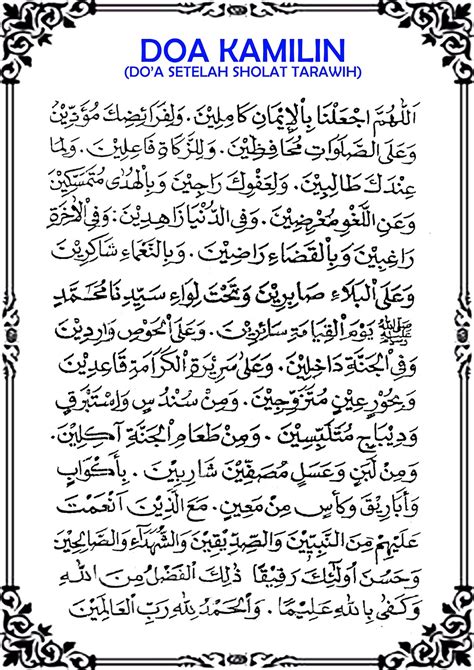 DOA KAMILIN
(DO'A SETELAH SHOLAT TARAWIH)
اَللّٰهُمَّ اجْعَلْنَا بِالْإِيْمَانِ كَامِلِيْنَ . وَلِفَرَائِضِكَ مُؤَدِّيْنَ
وَعَلَى الصَّلَوَاتِ مُحَافِظِيْنَ . وَلِلزَّكَاةِ فَاعِلِيْنَ . وَلِمَا
عِنْدَكَ طَالِبِيْنَ . وَلِعَفْوِكَ رَاجِيْنَ وَبِالْهُدٰى مُتَمَسِّكِيْنَ
وَعَنِ اللَّغْوِ مُعْرِضِيْنَ . وَفِي الدُّنْيَا زَاهِدِيْنَ . وَفِي الْاٰخِرَةِ
رَاغِبِيْنَ وَبِالْقَضَاءِ رَاضِيْنَ . وَبِالنَّعْمَاءِ شَاكِرِيْنَ
وَعَلَى الْبَلَاءِ صَابِرِيْنَ وَتَحْتَ لِوَاءِ سَيِّدِنَا مُحَمَّدٍ
ﷺ يَوْمَ الْقِيَامَةِ سَائِرِيْنَ . وَعَلَى الْحَوْضِ وَارِدِيْنَ
وَفِي الْجَنَّةِ دَاخِلِيْنَ . وَعَلٰى سَرِيْرَةِ الْكَرَامَةِ قَاعِدِيْنَ
وَبِحُوْرٍ عِيْنٍ مُتَزَوِّجِيْنَ . وَمِنْ سُنْدُسٍ وَاِسْتَبْرَقٍ
وَدِيْبَاجٍ مُتَلَبِّسِيْنَ . وَمِنْ طَعَامِ الْجَنَّةِ اٰكِلِيْنَ .
وَمِنْ لَبَنٍ وَعَسَلٍ مُصَفَّيْنِ شَارِبِيْنَ . بِأَكْوَابٍ
وَأَبَارِيْقَ وَكَأْسٍ مِنْ مَعِيْنٍ . مَعَ الَّذِيْنَ اَنْعَمْتَ
عَلَيْهِمْ مِنَ النَّبِيِّيْنَ وَالصِّدِّيْقِيْنَ وَالشُّهَدَاءِ وَالصَّالِحِيْنَ
وَحَسُنَ أُولٰئِكَ رَفِيْقًا ذٰلِكَ الْفَضْلُ مِنَ اللهِ
وَكَفٰى بِاللهِ عَلِيْمًا . وَالْحَمْدُ لِلّٰهِ رَبِّ الْعَالَمِيْنَ